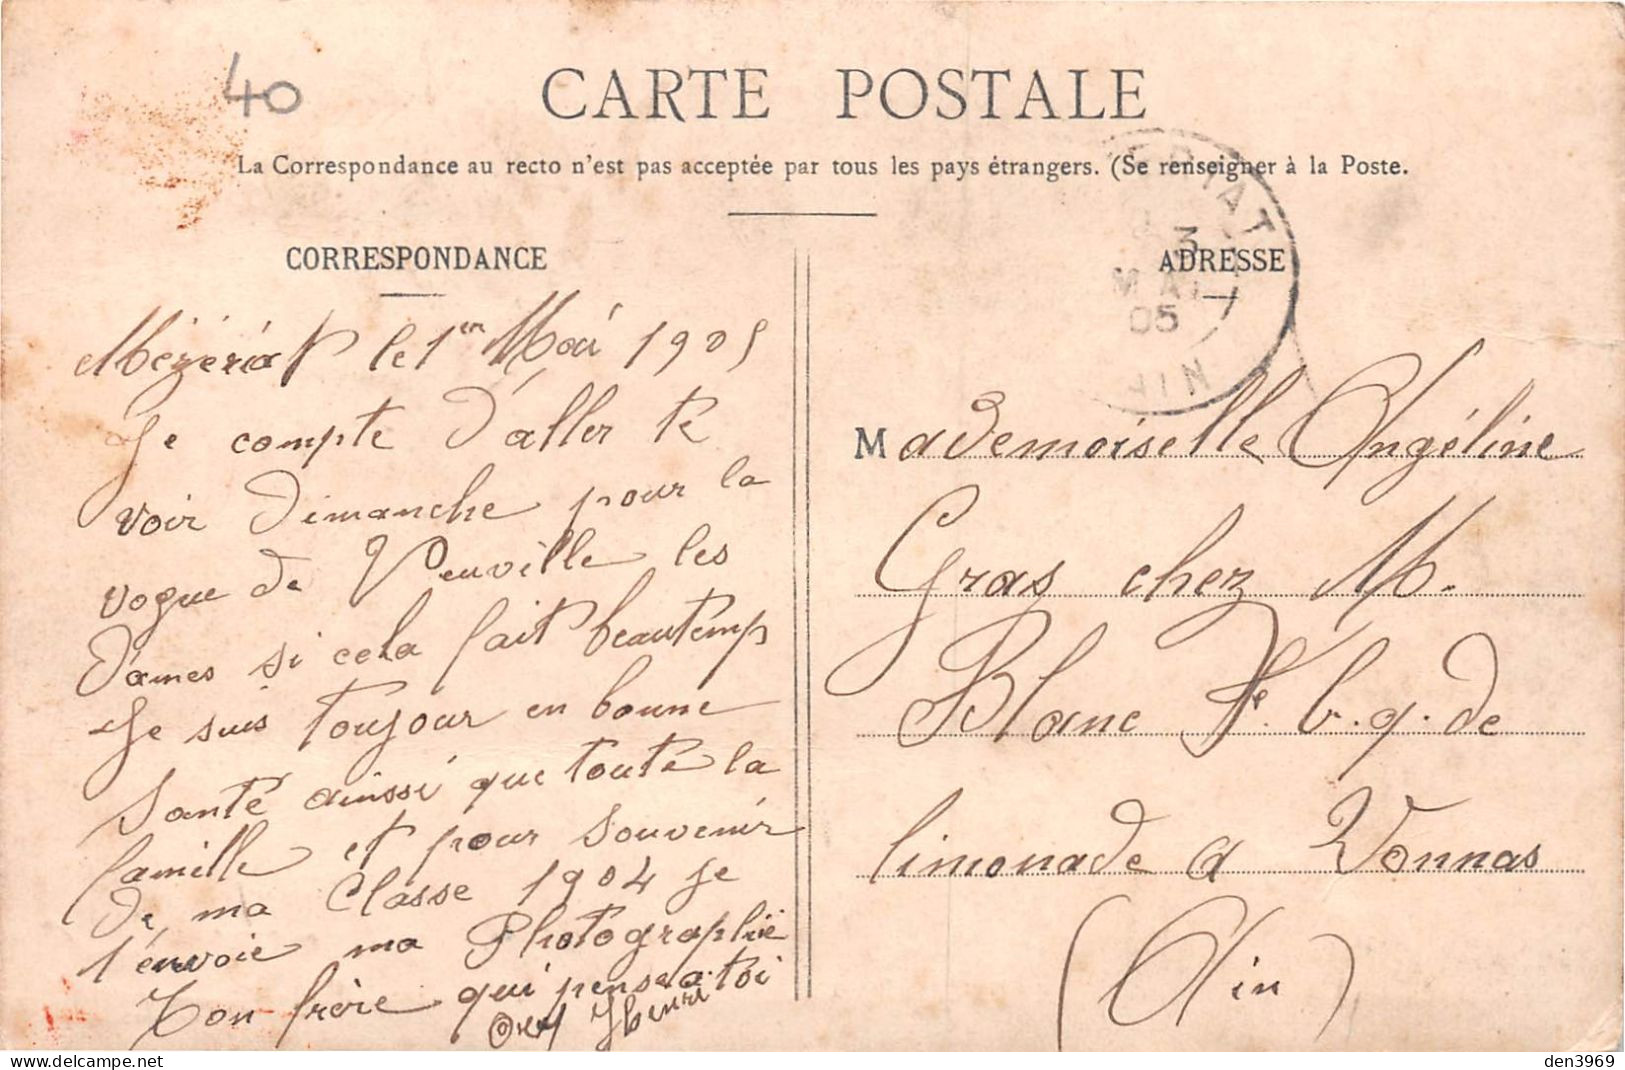 40
CARTE POSTALE
La Correspondance au recto n'est pas acceptée par tous les pays étrangers. (Se renseigner à la Poste.
CORRESPONDANCE
Mézériat le 1er Mai 1905
Je compte d'aller te
voir Dimanche pour la
vogue de Neuville les
Dames si cela fait beautemp
Je suis toujour en bonne
Santé ainssi que toute la
famille et pour souvenir
De ma Classe 1904 je
t'envoie ma Photographie
Ton frère qui pense a toi
Henri
ERIAT
3
MAI
05
AIN
ADRESSE
Mademoiselle Angéline
Gras chez M.
Blanc F. b. q. de
limonade a Vonnas
(Ain)
den3969